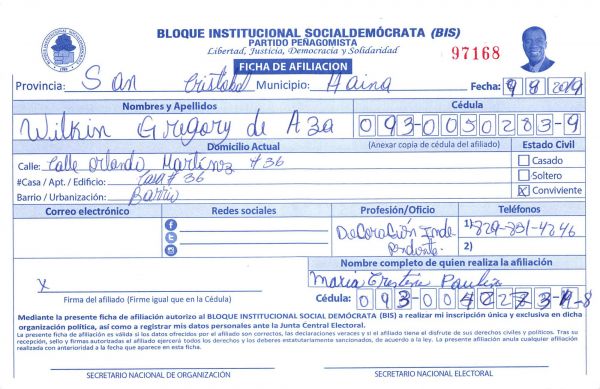 BLOQUE INSTITUCIONAL SOCIALDEMÓCRATA (BIS)
PARTIDO PEÑAGOMISTA
Libertad, Justicia, Democracia y Solidaridad
97168
FICHA DE AFILIACION
Provincia: San Cristobal Municipio: Haina Fecha: 9 8 2019
Nombres y Apellidos Cédula
Wilkin Gregory de Aza 093-0050283-9
Domicilio Actual (Anexar copia de cédula del afiliado) Estado Civil
Calle: Calle Orlando Martinez #36 Casado
#Casa / Apt. / Edificio: Casa # 36 Soltero
Barrio / Urbanización: Barrio X Conviviente
Correo electrónico Redes sociales Profesión/Oficio Teléfonos
Decoración Inde 1) 829-851-4846
pendiente 2)
Nombre completo de quien realiza la afiliación
Maria Paulino
X
Firma del afiliado (Firme igual que en la Cédula) Cédula: 093-00
Mediante la presente ficha de afiliación autorizo al BLOQUE INSTITUCIONAL SOCIAL DEMÓCRATA (BIS) a realizar mi inscripción única y exclusiva en dicha
organización política, así como a registrar mis datos personales ante la Junta Central Electoral.
La presente ficha de afiliación es válida si los datos ofrecidos por el afiliado son correctos, las declaraciones veraces y si el afiliado tiene el disfrute de sus derechos civiles y políticos. Tras su
recepción, sello y firmas autorizadas el afiliado ejercerá todos los derechos y los deberes estatutariamente sancionados, de acuerdo a la ley. La presente afiliación anula cualquier afiliación
realizada con anterioridad a la fecha que aparece en esta ficha.
SECRETARIO NACIONAL DE ORGANIZACIÓN SECRETARIO NACIONAL ELECTORAL